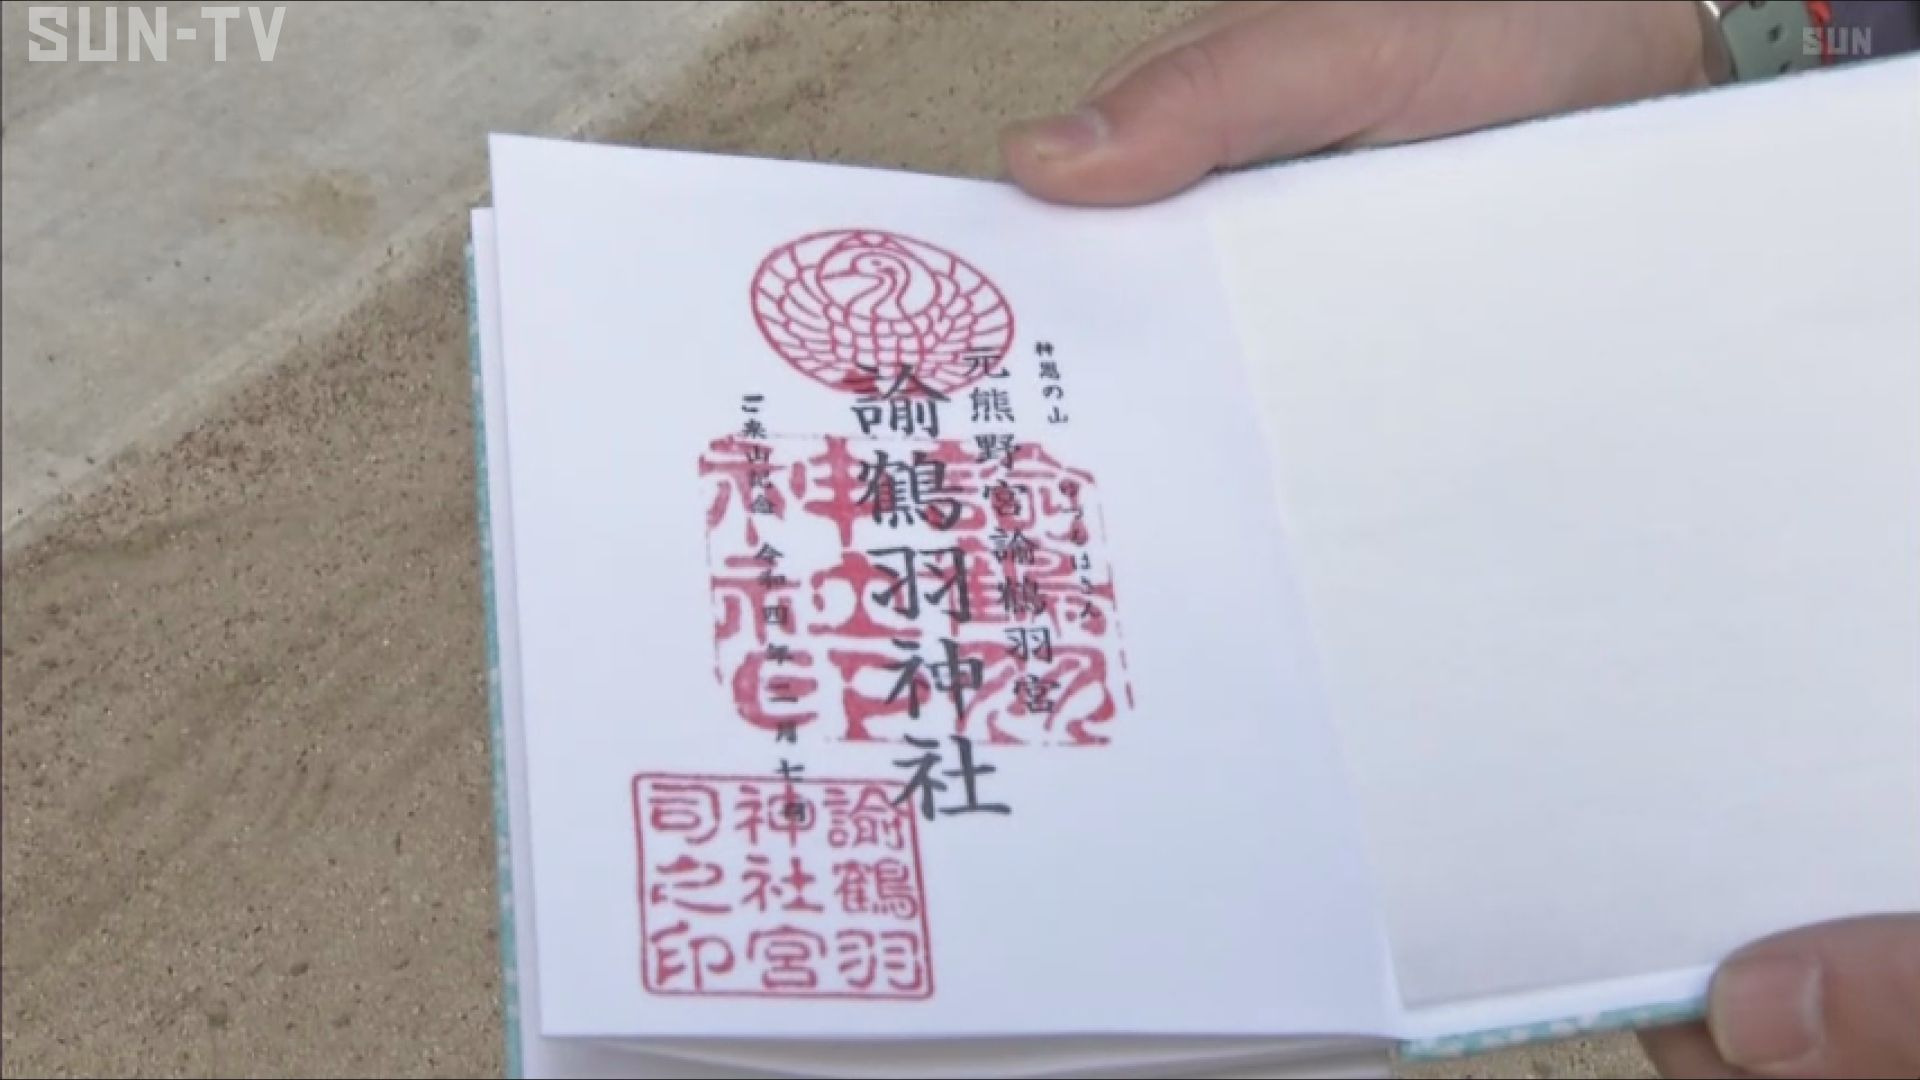 SUN-TV
SUN
神恩の山
ゆづるはさん
元熊野宮諭鶴羽宮
諭鶴羽神社
ご来山記念 令和四年二月七日
諭鶴羽
神社印
諭鶴羽
神社宮
司之印